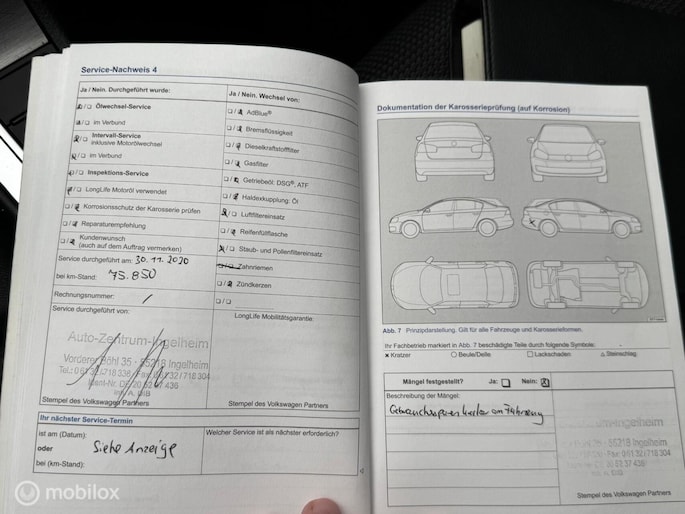 Service-Nachweis 4
Ja / Nein. Durchgeführt wurde:
Ölwechsel-Service
im Verbund
Intervall-Service
inklusive Motorölwechsel
im Verbund
Inspektions-Service
LongLife Motoröl verwendet
Korrosionsschutz der Karosserie prüfen
Reparaturempfehlung
Kundenwunsch
(auch auf dem Auftrag vermerken)
Service durchgeführt am: 30.11.2020
bei km-Stand: 75.850
Rechnungsnummer: /
Service durchgeführt von:
Auto-Zentrum-Ingelheim
35 - 55218 Ingelheim
Stempel des Volkswagen Partners
Ja / Nein. Wechsel von:
AdBlue®
Bremsflüssigkeit
Dieselkraftstofffilter
Gasfilter
Getriebeöl: DSG®, ATF
Haldexkupplung: Öl
Luftfiltereinsatz
Reifenfüllflasche
Staub- und Pollenfiltereinsatz
Zahnriemen
Zündkerzen
LongLife Mobilitätsgarantie:
Stempel des Volkswagen Partners
Ihr nächster Service-Termin
ist am (Datum):
oder Siehe Anzeige
bei (km-Stand):
Welcher Service ist als nächster erforderlich?
Dokumentation der Karosserieprüfung (auf Korrosion)
Abb. 7 Prinzipdarstellung. Gilt für alle Fahrzeuge und Karosserieformen.
Ihr Fachbetrieb markiert in Abb. 7 beschädigte Teile durch folgende Symbole:
× Kratzer ○ Beule/Delle □ Lackschaden △ Steinschlag
Mängel festgestellt? Ja: Nein:
Beschreibung der Mängel:
Gebrauchsspuren am Fahrzeug
um-Ingelheim
35 - 55218 Ingelheim
Stempel des Volkswagen Partners
mobilox